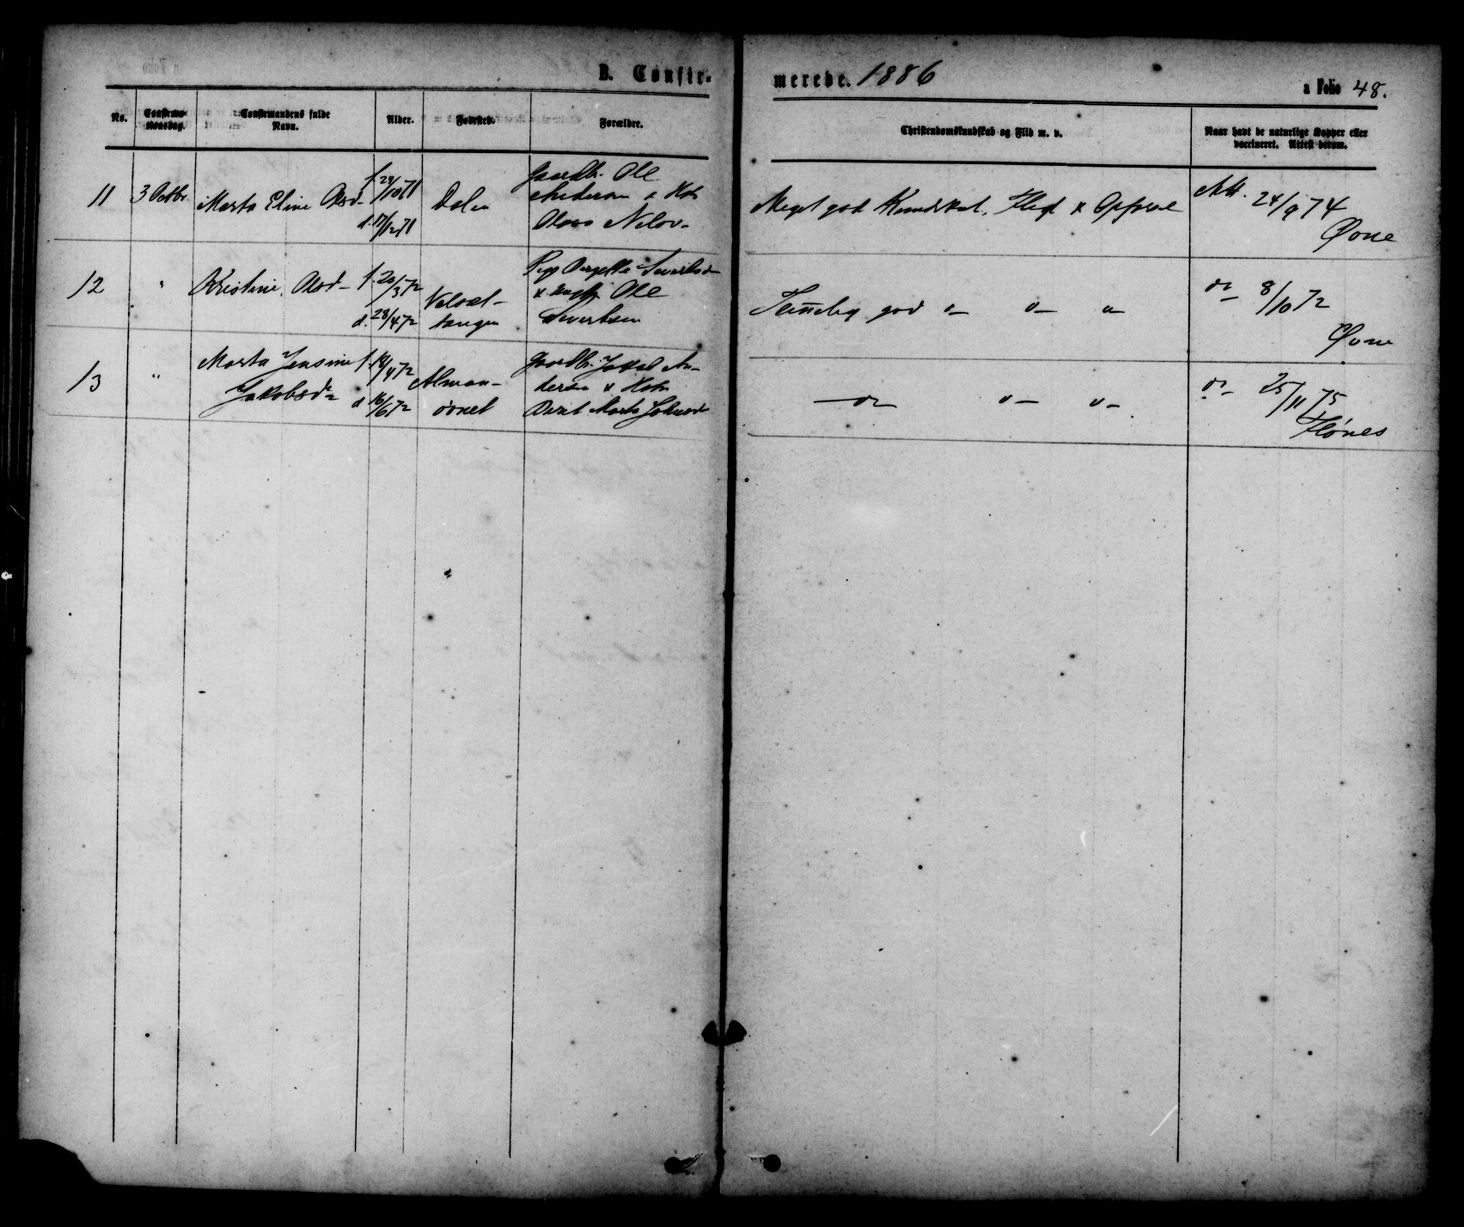 B. Confir-
merede. 1886
a Folio 48.
No.
Confirma-
tionsdag.
Confirmandens fulde
Navn.
Alder.
Fødested.
Forældre.
Christendomskundskab og Flid m. v.
Naar havt de naturlige Kopper eller
vaccineret. Attest derom.
11
3 Octbr
Marta Eline Olsd-
f. 24/10 71
d. 17/12 71
Dalen
Gaardbr. Ole
Andersen &
Nilsv-
Meget god Kundskab, Flid & Opførsel
Att. 24/9 74
Øvne
12
"
Kristine Olsd-
f. 20/3 72
d. 28/4 72
tangen
Pige Sivertsd
& Ole
Sivertsen
Temmelig god
8/10 72
Øvne
13
"
Marta Jensine
Jakobsd-
f. 14/4 72
d. 16/6 72
Alman-
øvnet
Gaardbr. Jakob An-
dersen &
Berit Marta Johnsd
25/11 75